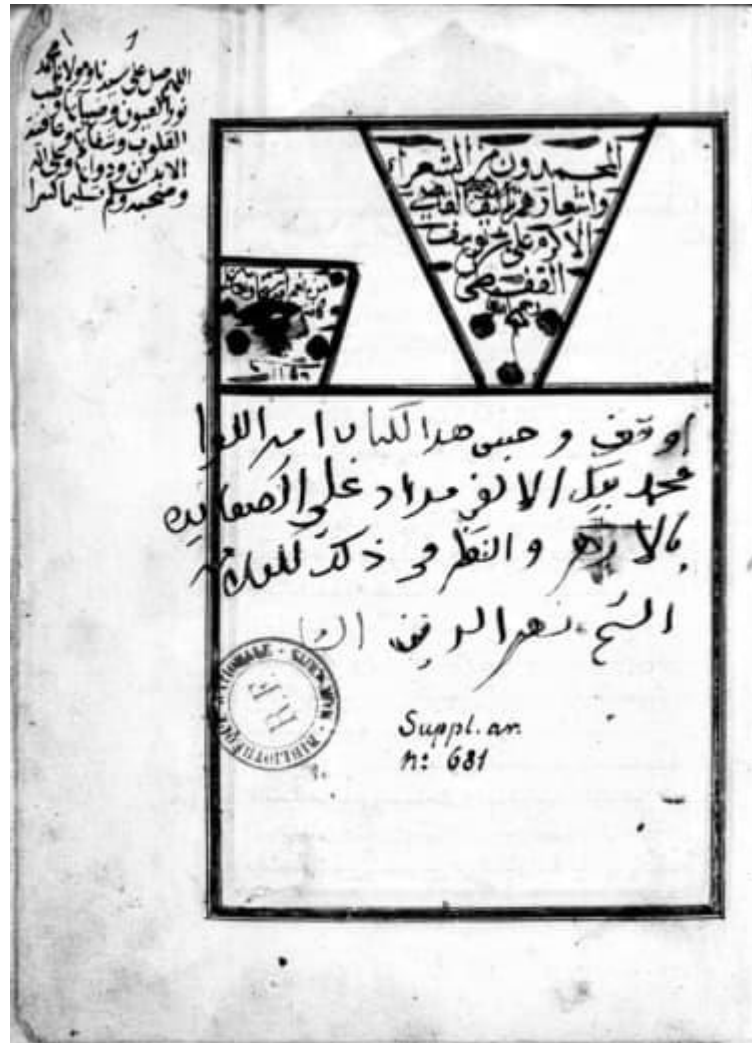 1
اللهم صل على سيدنا ومولانا محمد
نور العيون وضيائها وطب
القلوب وشفائها وعافية
الابدان ودوائها وعلى اله
وصحبه وسلم تسليما كثيرا
المحمدون من الشعراء
واشعارهم تاليف القاضي
الاكرم علي بن يوسف
القفطي
رحمه الله
اوقف وحبس هذا الكتاب امير اللوا
محمد بيك الالفي مراد على الصعايده
بالازهر والنظر في ذلك
الشيخ نصر الدين
BIBLIOTHÈQUE NATIONALE
Suppl. ar.
n: 681